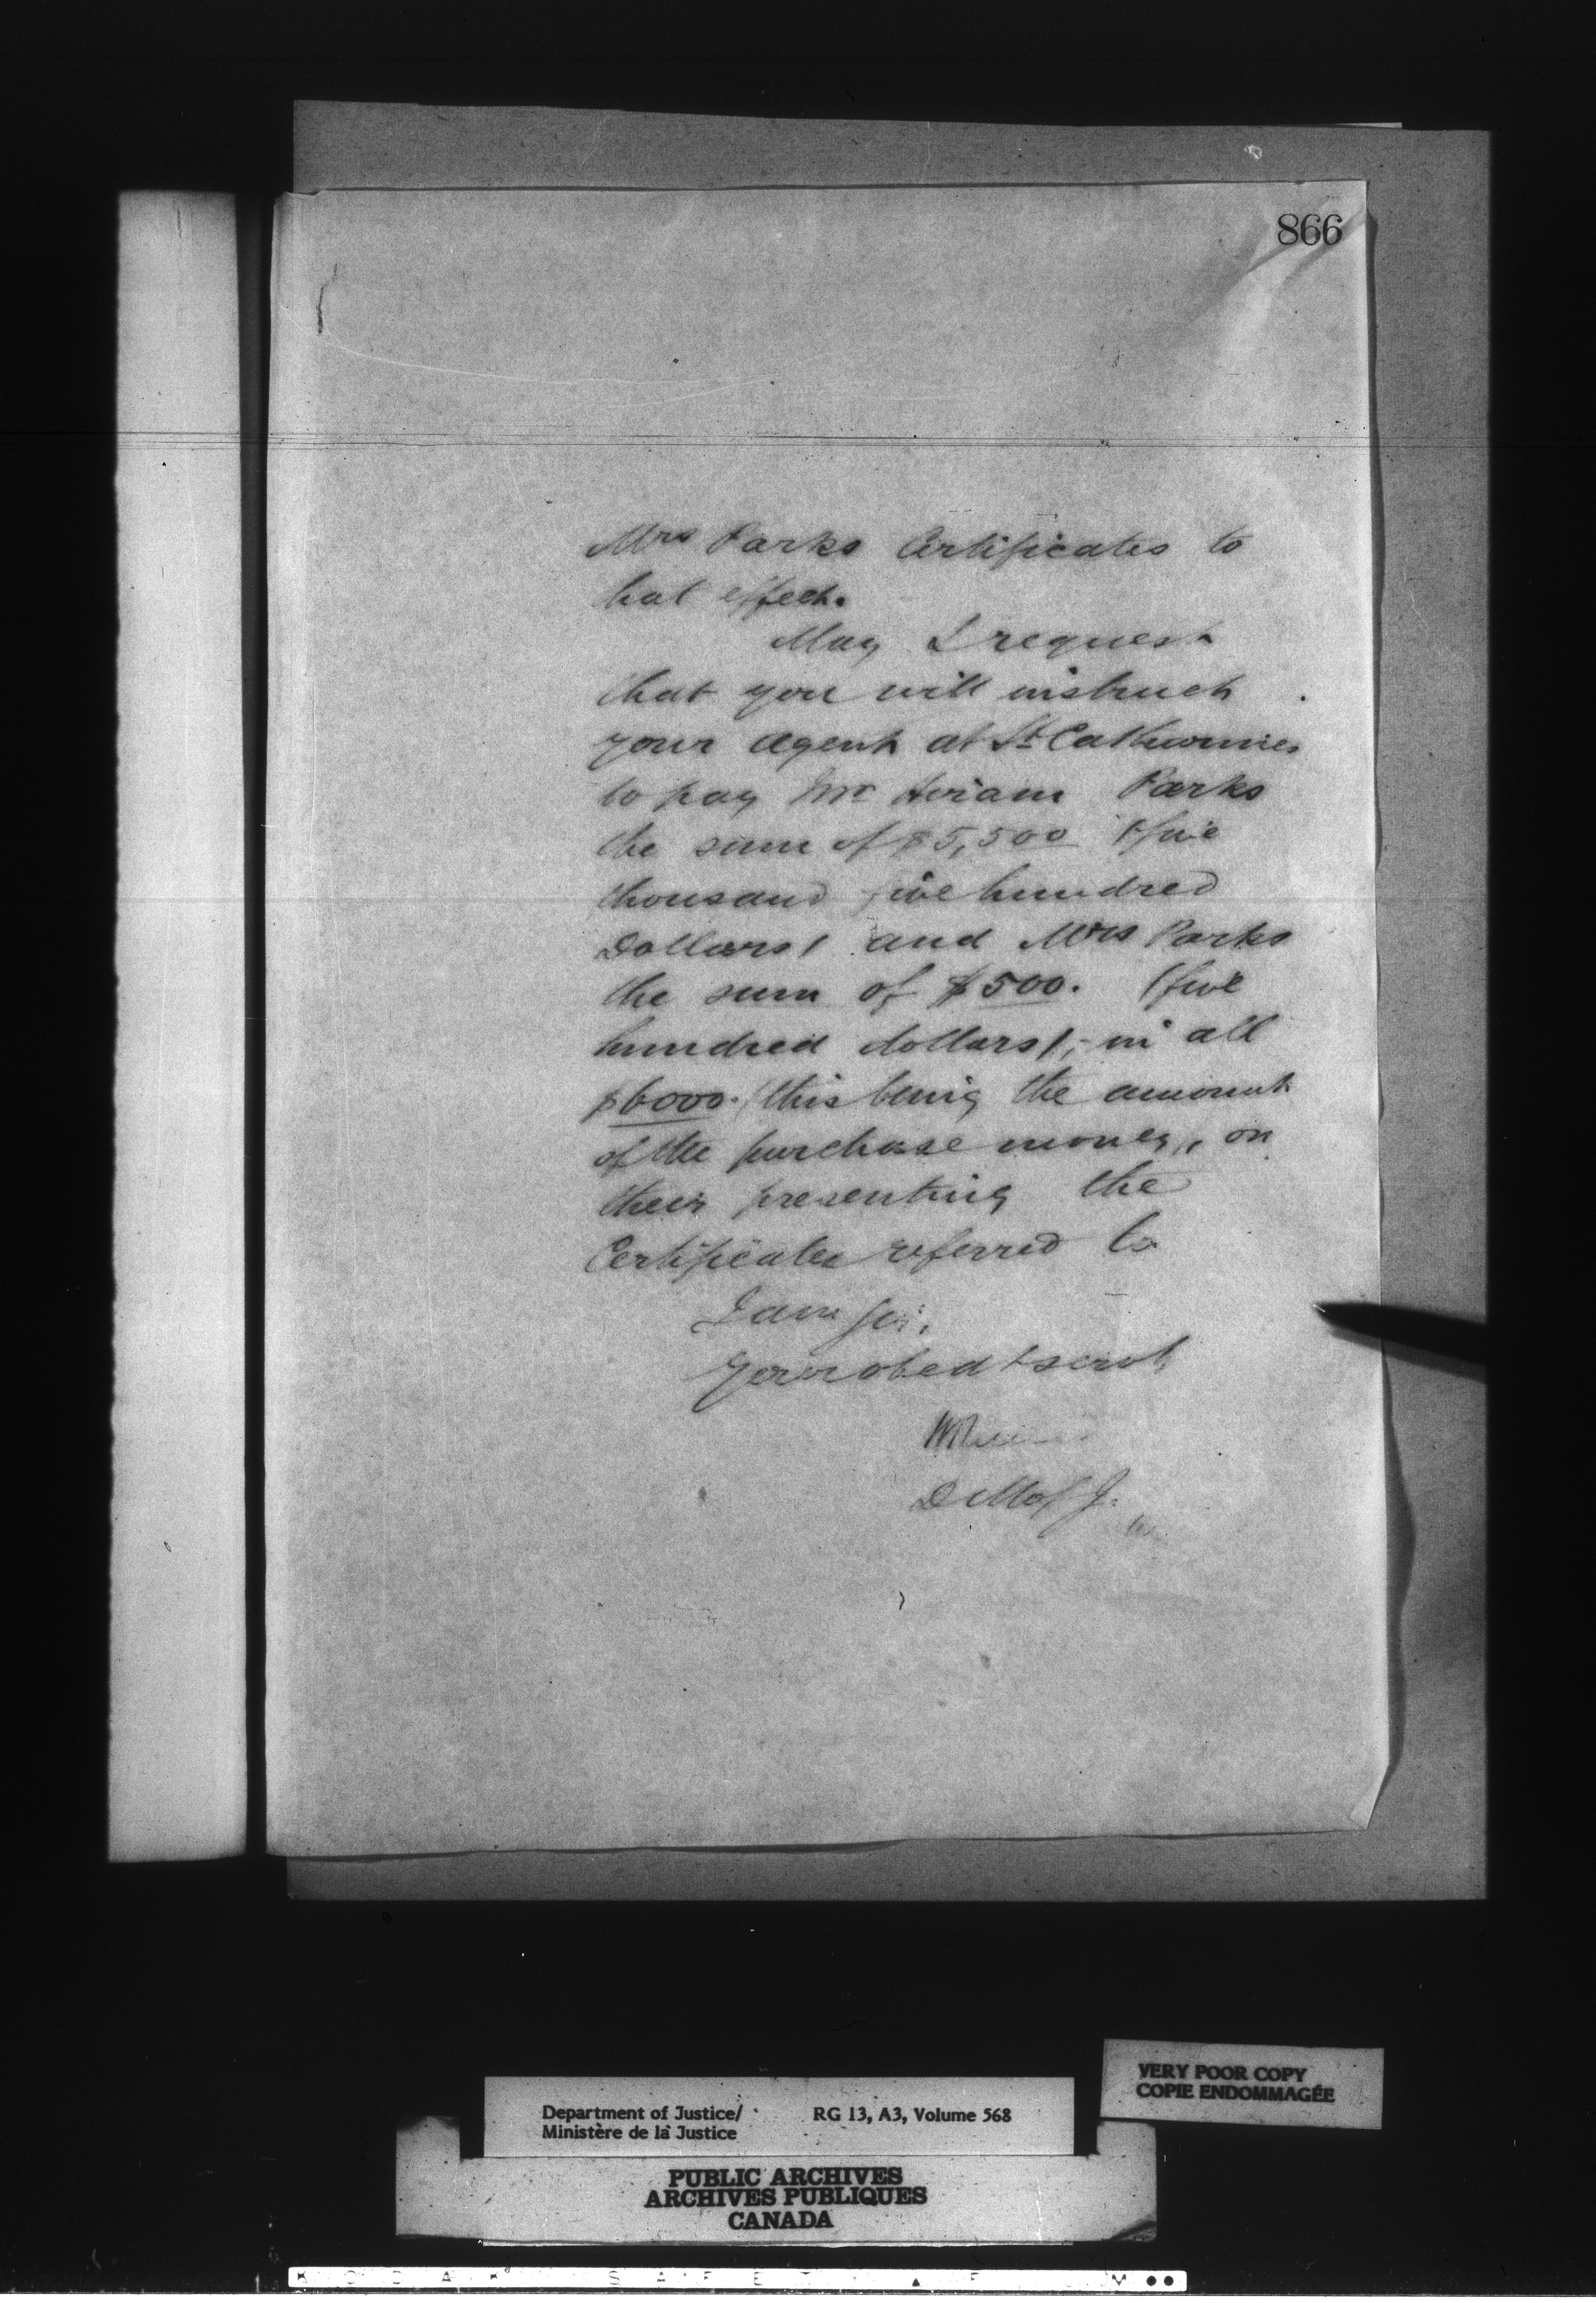 866
Mrs Parks Certificates to
hat effect.
May I request
that you will instruct
your agent at St Catharines
to pay Mr Hiram Parks
the sum of $5,500 (five
thousand five hundred
Dollars) and Mrs Parks
the sum of $500. (five
hundred dollars), in all
$6000. this being the amount
of the purchase money, on
their presenting the
Certificates referred to
I am Sir,
Your obedt servt,
D M of J.
VERY POOR COPY
COPIE ENDOMMAGÉE
Department of Justice/ RG 13, A3, Volume 568
Ministère de la Justice
PUBLIC ARCHIVES
ARCHIVES PUBLIQUES
CANADA